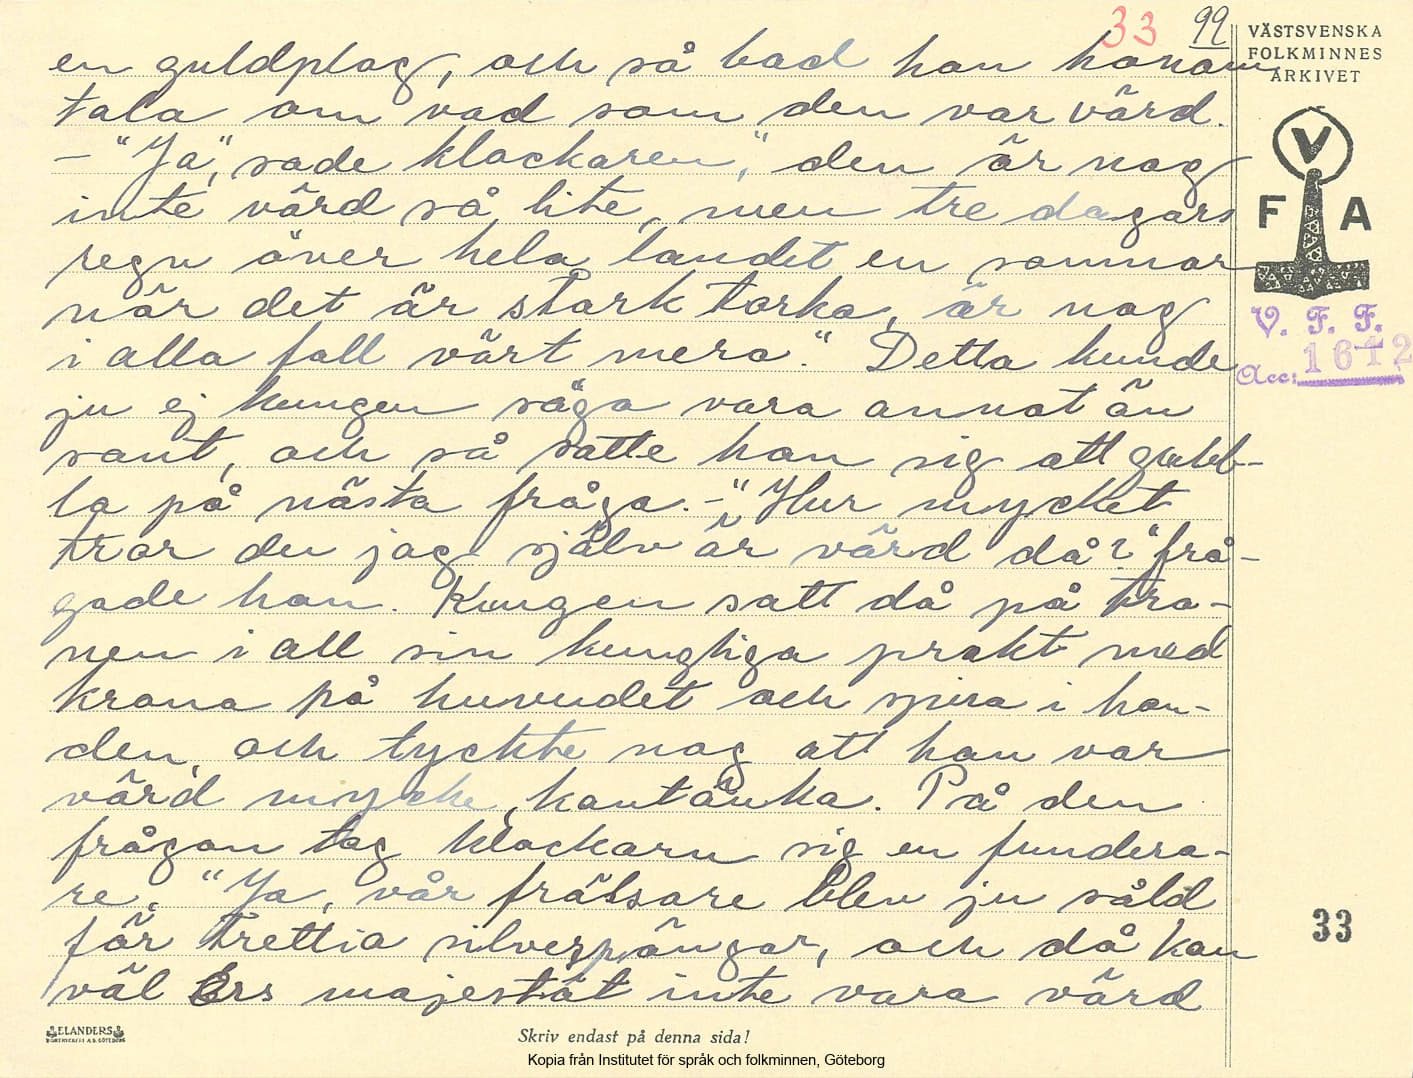 33 99
VÄSTSVENSKA
FOLKMINNES
ARKIVET
V
F A
V. F. F.
Acc: 1612
en guldplog, och så bad han honom
tala om vad som den var värd.
– "Ja", sade klockaren, "den är nog
inte värd så lite, men tre dagars
regn över hela landet en sommar
när det är stark torka, är nog
i alla fall värt mera." Detta kunde
ju ej kungen säga vara annat än
sant, och så satte han sig att grubb-
la på nästa fråga. – "Hur mycket
tror du jag själv är värd då?" frå-
gade han. Kungen satt då på tro-
nen i all sin kungliga prakt med
krona på huvudet och spira i han-
den, och tyckte nog att han var
värd mycke, kantänka. På den
frågan tog klockarn sig en fundera-
re. "Ja, vår frälsare blev ju såld
för trettio silverpängar, och då kan
väl Ers majestät inte vara värd
33
ELANDERS
BOKTRYCKERI A.B. GÖTEBORG
Skriv endast på denna sida!
Kopia från Institutet för språk och folkminnen, Göteborg